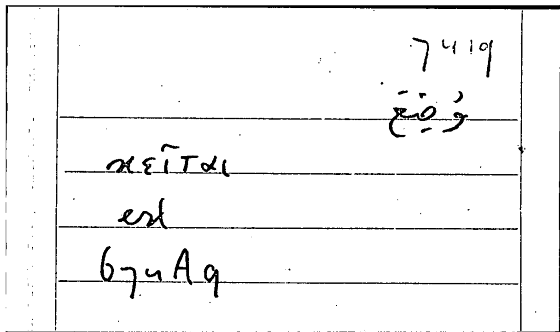 7419
وُضِعَ
κεῖται
est
674A9